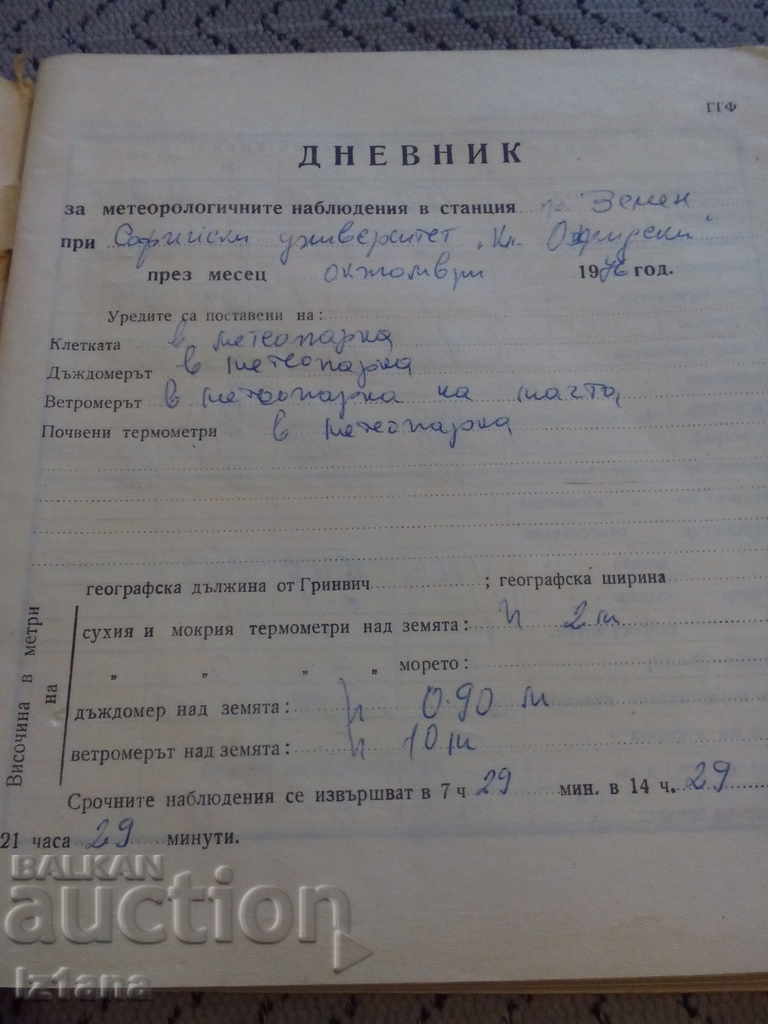 ГГФ
ДНЕВНИК
за метеорологичните наблюдения в станция гр. Земен
при Софийски университет „Кл. Охридски"
през месец октомври 1976 год.
Уредите са поставени на:
Клетката в метеопарка
Дъждомерът в метеопарка
Ветромерът в метеопарка на мачта
Почвени термометри в метеопарка
географска дължина от Гринвич ; географска ширина
Височина в метри на
сухия и мокрия термометри над земята: h 2 m
„ „ „ „ морето:
дъждомер над земята: h 0.90 m
ветромерът над земята: h 10 m
Срочните наблюдения се извършват в 7 ч 29 мин. в 14 ч. 29
21 часа 29 минути.
BALKAN
auction
iz1ana